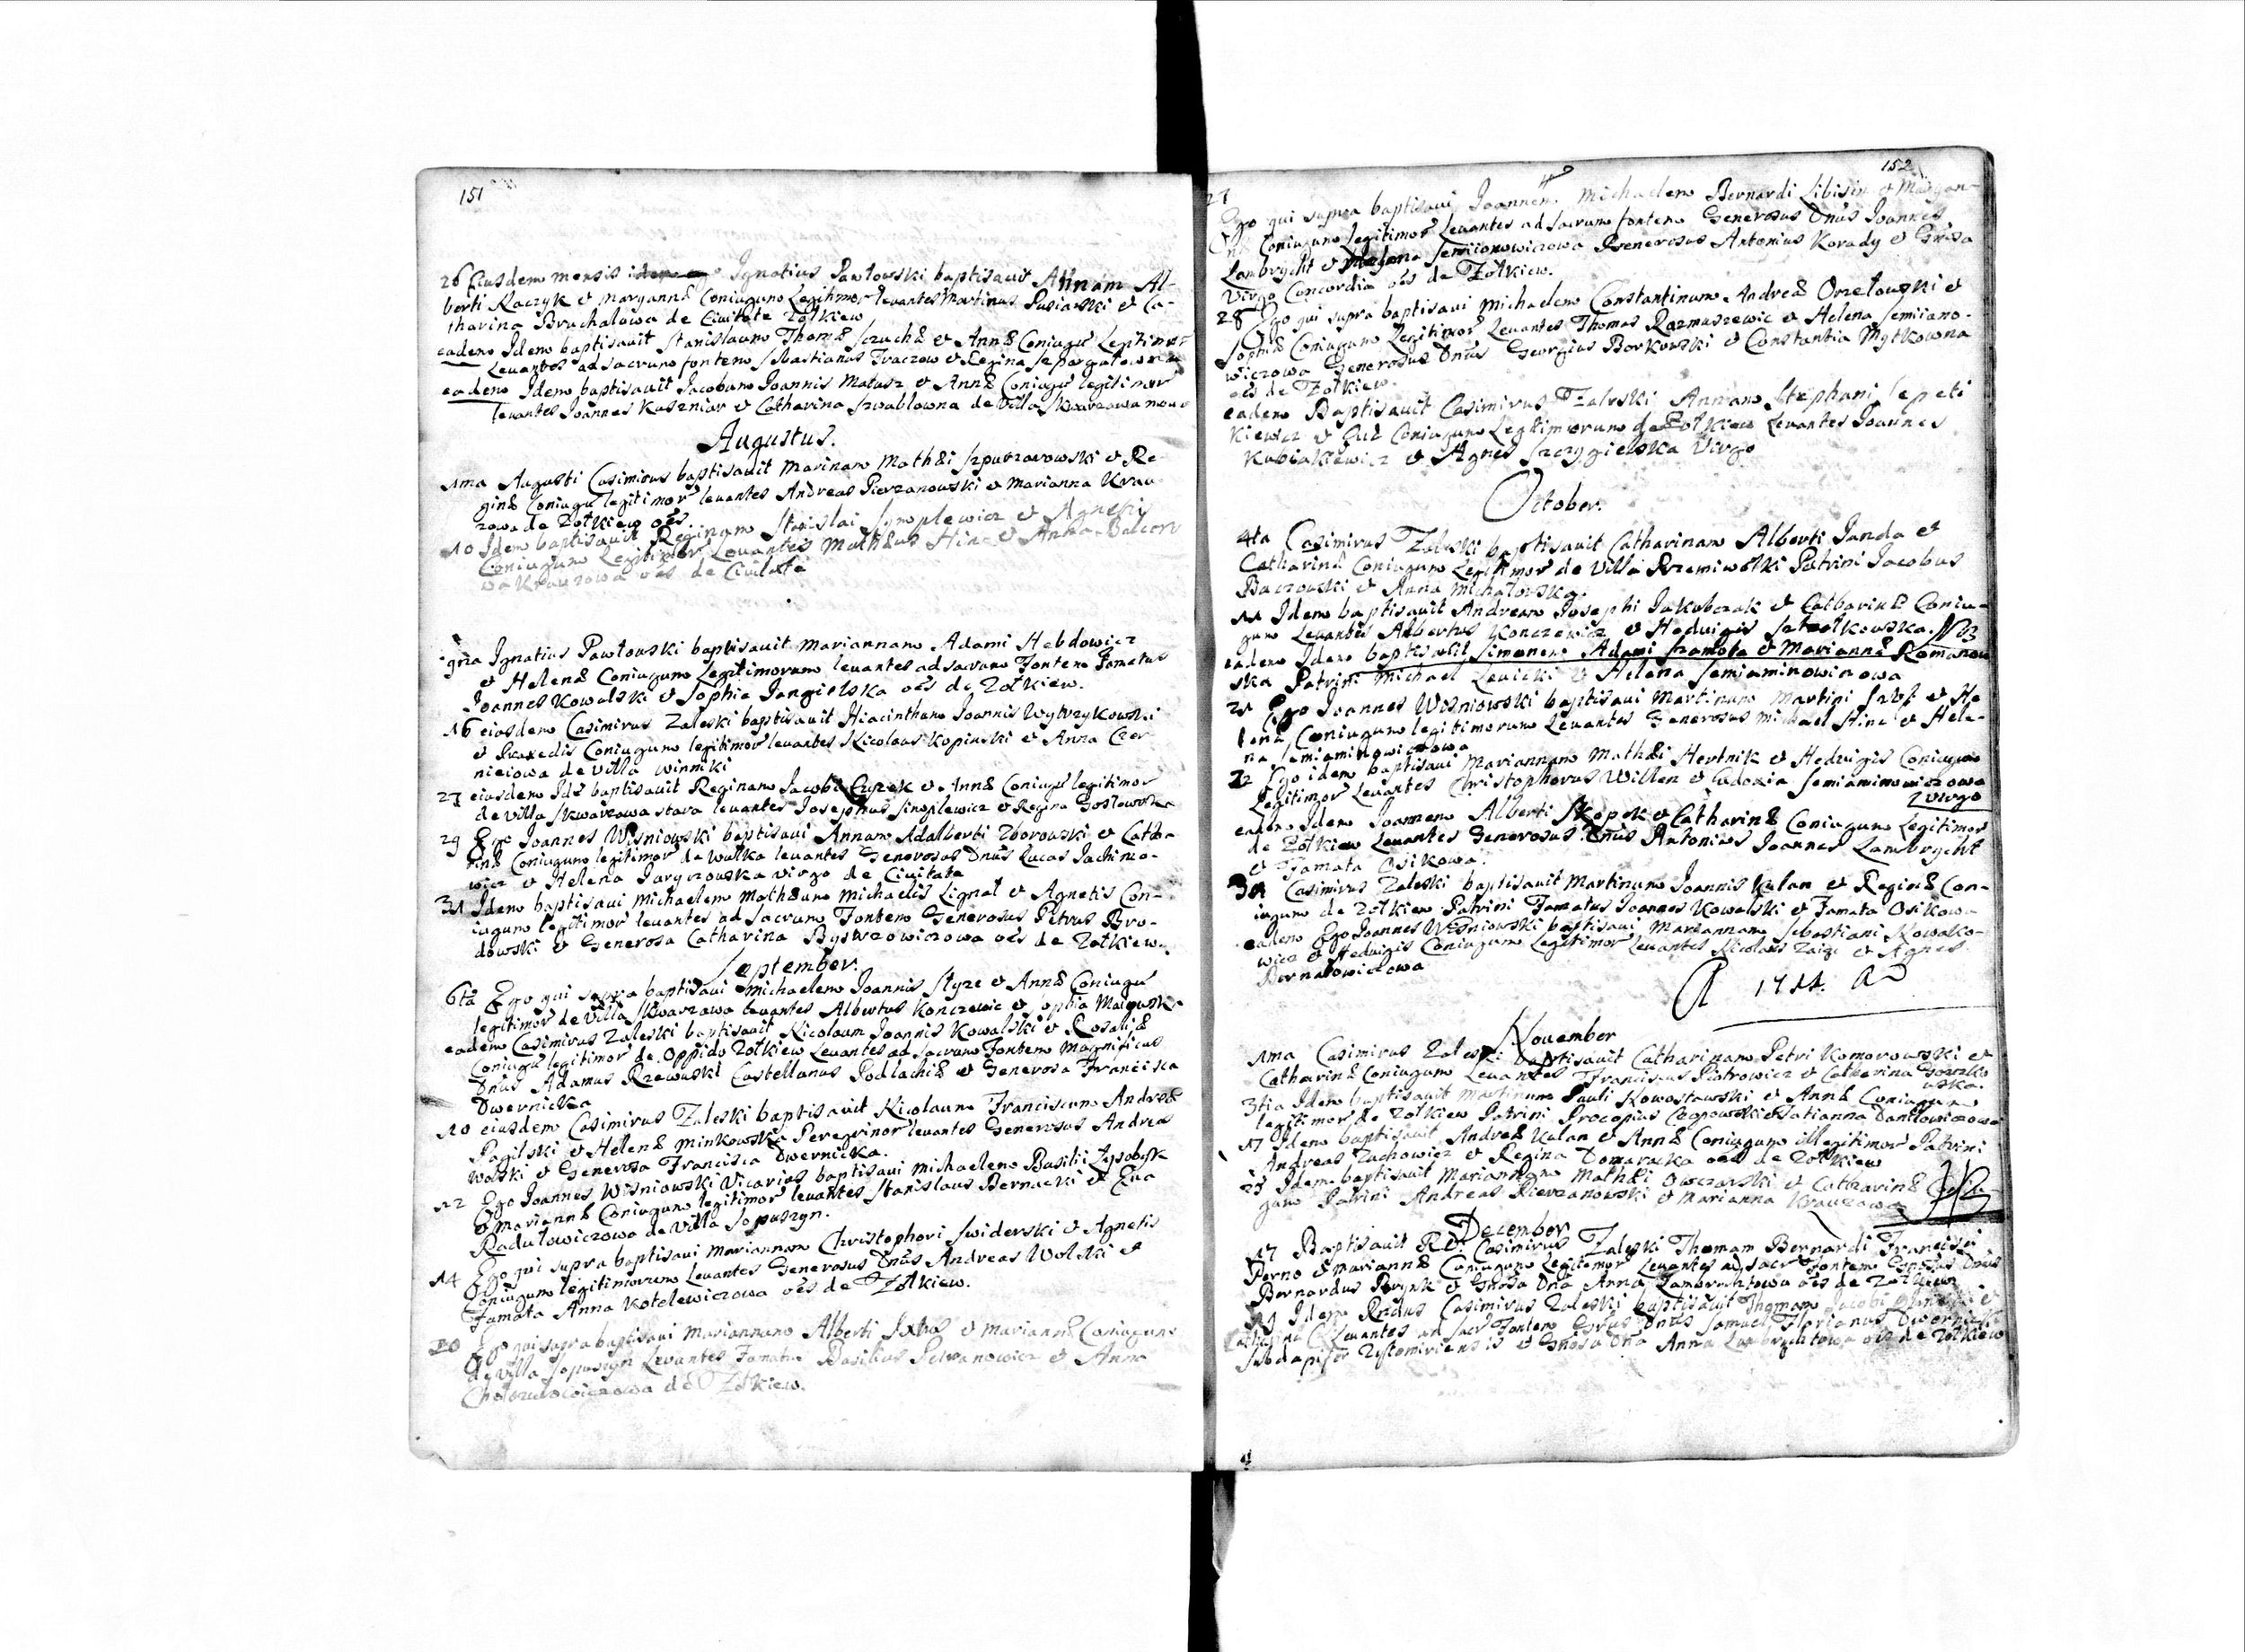 151
26 Eiusdem mensis Ignatius Pawłowski baptisauit Annam Al-
berti Raczyk et Maryannæ Coniugum Legitimor levantes Martinus Pusiarski et Ca-
tharina Bruchalowa de Ciuitate Zołkiew
eadem Idem baptisauit Stanislaum Thomæ et Annæ Coniugū Legitimor
Levantes ad sacrum fontem Sebastianus Traczow et Regina
eadem Idem baptisauit Jacobum Joannis Matusz et Annæ Coniugū legitimor
levantes Joannes Kuszniar et Catharina de Villa Skwarzawa noua
Augustus.
1ma Augusti Casimirus baptisauit Marinam Mathæi et Re-
ginæ Coniugū legitimor levantes Andreas Pierzanowski et Marianna Krau-
zowa de Zołkiew oēs.
10 Idem baptisauit Reginam Stanislai et Agnetis
Coniugum Legitimor Levantes Mathæus Hinc et Anna
Krauzowa oēs de Ciuitate
Ignatius Pawłowski baptisauit Mariannam Adami Hebdowicz
et Helenæ Coniugum Legitimorum levantes ad sacrum Fontem Famatus
Joannes Kowalski et Sophia Jangielska oēs de Zołkiew.
16 eiusdem Casimirus Zaleski baptisauit Hiacinthum Joannis Wytrzykowski
et Praxedis Coniugum legitimor levantes Nicolaus Kopinski et Anna Czer-
nieiowa de Villa Winniki
27 eiusdem Idē baptisauit Reginam Jacobi et Annæ Coniugū legitimor
de Villa Skwarzawa stara levantes Josephus et Regina Gosłowska
29 Ego Joannes Wisniowski baptisaui Annam Adalberti Zborowski et Catha-
rinæ Coniugum legitimor de Wulka levantes Generosus Dnūs Lucas Jachimo-
wicz et Helena virgo de Ciuitate
31 Idem baptisaui Michaelem Mathæum Michaelis Lignal et Agnetis Con-
iugum legitimor levantes ad sacrum Fontem Generosus Petrus Bro-
dowski et Generosa Catharina Bystrzowiczowa oēs de Zołkiew.
September.
6ta Ego qui supra baptisaui Michaelem Joannis et Annæ Coniugū
legitimor de Villa Skwarzawa levantes Albertus Konczewic et Sophia
eadem Casimirus Zaleski baptisauit Nicolaum Joannis Kowalski et Rosaliæ
Coniugū legitimor de Oppido Zołkiew Levantes ad sacrum Fontem Magnificus
Dnūs Adamus Rzewuski Castellanus Podlachiæ et Generosa Francisca
Dwernicka
10 eiusdem Casimirus Zaleski baptisauit Nicolaum Franciscum Andreæ
et Helenæ Minkowska Peregrinor levantes Generosus Andreas
Wolski et Generosa Francisca Dwernicka.
12 Ego Joannes Wisniowski Vicarius baptisaui Michaelem Basilii
et Mariannæ Coniugum legitimor levantes Stanislaus Bernacki et Eua
Radułowiczowa de Villa Sopuszyn.
14 Ego qui supra baptisaui Mariannam Christophori Swiderski et Agnetis
Coniugum legitimorum Levantes Generosus Dnūs Andreas Wolski et
Famata Anna Kotelewiczowa oēs de Zołkiew.
20 Ego qui supra baptisaui Mariannam Alberti et Mariannæ Coniugum
de Villa Sopuszyn Levantes Famatus Basilius et Anna
de Zołkiew.
152
27
Ego qui supra baptisaui Joannem Michaelem Bernardi et
Coniugum Legitimor Levantes ad sacrum fontem Generosus Dnūs Joannes
Lambrycht et Semiionowiczowa Generosus Antonius Korady et
Virgo Concordia oēs de Zołkiew.
28 Ego qui supra baptisaui Michaelem Constantinum Andreæ Orzełowski et
Sophiæ Coniugum Legitimor Levantes Thomas Razmuszewic et Helena Semiiano-
wiczowa Generosus Dnūs Georgius Borkowski et Constantia Mytkowna
oēs de Zołkiew.
eadem Baptisauit Casimirus Zaleski Annam Stephani
et Euæ Coniugum Legitimorum de Zołkiew Levantes Joannes
Kubiakiewicz et Agnes Szczygielska Virgo
October.
4ta Casimirus Zaleski baptisauit Catharinam Alberti Janda et
Catharinæ Coniugum Legitimor de Villa Przemiwołki Patrini Jacobus
Baczowski et Anna Michalowska.
11 Idem baptisauit Andream Josephi Jakubczak et Catharinæ Coniu-
gum Levantes Albertus Konczewicz et Heduigis
eadem Idem baptisauit Simonem Adami et Mariannæ Romanow-
ska Patrini Michael Leuicki et Helena Semiaminowiczowa
21 Ego Joannes Wisniowski baptisaui Martinum Martini et He-
lenæ Coniugum legitimorum Levantes Generosus Michael Hinc et Hele-
na Semiaminowiczowa
22 Ego idem baptisaui Mariannam Mathæi Hertnik et Heduigis Coniugum
Legitimor Levantes Christophorus Willen et Eudoxia Semiaminowiczowa
Virgo
eadem Idem Joannem Alberti Skopek et Catharinæ Coniugum Legitimor
de Zołkiew Levantes Generosus Dnūs Antonius Joannes Lambrycht
et Famata Osikowa.
30 Casimirus Zaleski baptisauit Martinum Joannis Kulan et Reginæ Con-
iugum de Zołkiew Patrini Famatus Joannes Kowalski et Famata Osikowa
eadem Ego Joannes Wisniowski baptisaui Mariannam Sebastiani Kowalko-
wicz et Heduigis Coniugum Legitimor Levantes Nicolaus et Agnes
Bernatowiczowa
1711.
November
1ma Casimirus Zaleski baptisauit Catharinam Petri Komorowski et
Catharinæ Coniugum Levantes Franciscus Piotrowicz et Catharina
3tia Idem baptisauit Martinum Pauli Nowosławski et Annæ Coniugum
legitimor de Zołkiew Patrini Procopius et Tatianna Daniłowiczowa
17 Idem baptisauit Andreæ Kulan et Annæ Coniugum illegitimor Patrini
Andreas Zuchowicz et Regina Domaracka oēs de Zołkiew
25 Idem baptisauit Mariannam Mathæi Owczarski et Catharinæ
gum Patrini Andreas Pierzanowski et Marianna Krauzowa
December
17 Baptisauit Casimirus Zaleski Thomam Bernardi Francisci
Perno et Mariannæ Coniugum Legitimor Levantes ad sacr Fontem Dnūs
Bernardus et Dna Anna oēs de Zołkiew
19 Idem Casimirus Zaleski baptisauit Thomam Jacobi et
Levantes ad sacr Fontem Dnūs Samuel Florianus
Subdapifer et Dna Anna oēs de Zołkiew